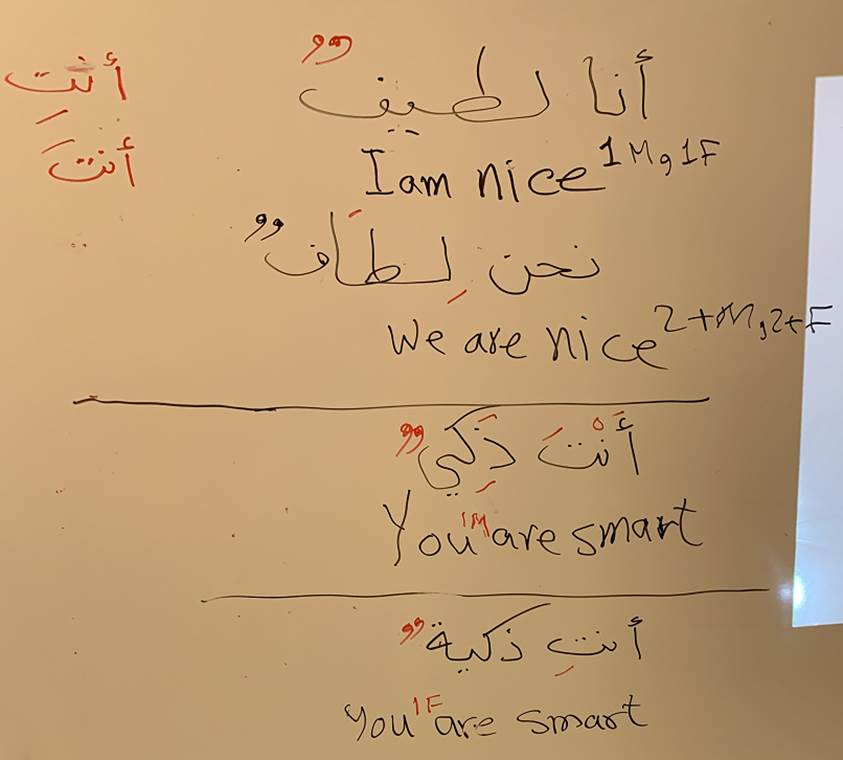 أنا لطيفٌ
I am nice 1M, 1F
نحن لِطَافٌ
We are nice 2+M, 2+F
أَنْتَ ذَكِيٌ
You 1M are smart
أنتِ ذكيةٌ
you 1F are smart
أنتِ
أنتَ